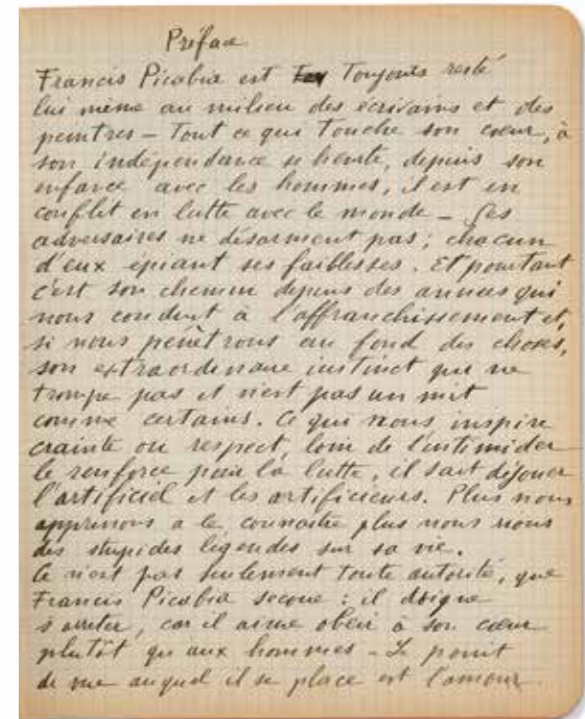 Préface
Francis Picabia est Toujours resté
lui même au milieu des écrivains et des
peintres – Tout ce qui Touche son cœur, à
son indépendance se heurte, depuis son
enfance avec les hommes, il est en
conflit en lutte avec le monde – Ses
adversaires ne désarment pas ; chacun
d'eux épiant ses faiblesses. Et pourtant
c'est son chemin depuis des années qui
nous conduit à l'affranchissement et,
si nous pénétrons au fond des choses,
son extraordinaire instinct qui ne
trompe pas et n'est pas un mit
comme certains. Ce qui nous inspire
crainte ou respect, loin de l'intimider
le renforce pour la lutte, il sait déjouer
l'artificiel et les artificieurs. Plus nous
apprenons a le connaitre plus nous rions
des stupides légendes sur sa vie.
Ce n'est pas seulement toute autorité, que
Francis Picabia secoue : il
s'arreter, car il aime obéir à son cœur
plutôt qu'aux hommes – Le point
de vue auquel il se place est l'amour